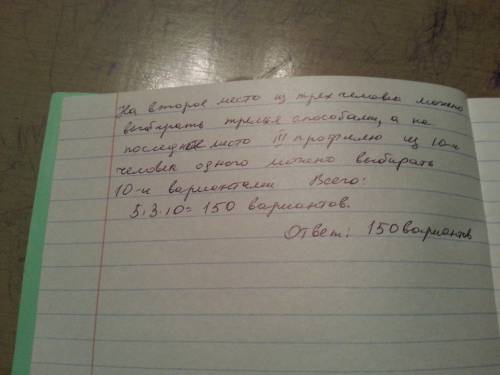 На второе место из трех человек можно
выбирать тремя способами, а на
последнее место III профилю из 10-и
человек одного можно выбирать
10-и вариантами Всего:
5·3·10=150 вариантов.
Ответ: 150 вариантов